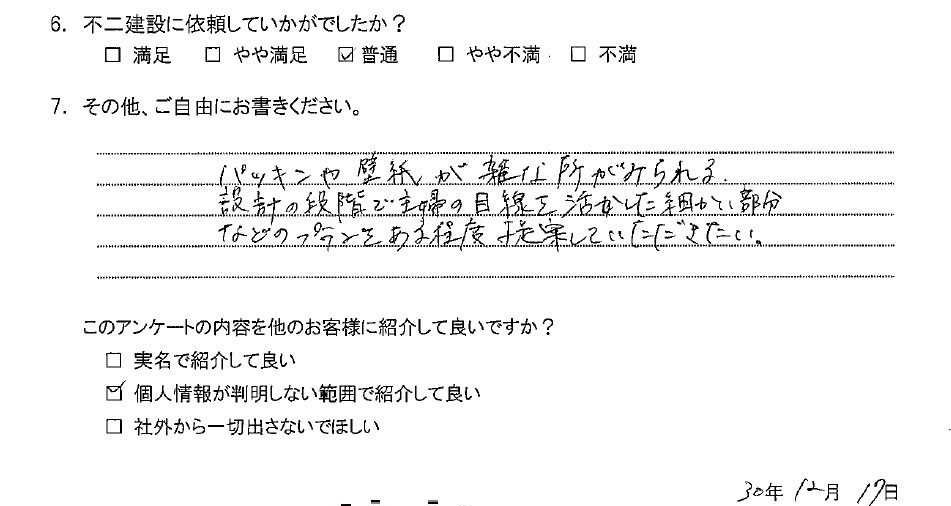 6. 不二建設に依頼していかがでしたか？
□ 満足 □ やや満足 ☑ 普通 □ やや不満 □ 不満
7. その他、ご自由にお書きください。
パッキンや壁紙が雑な所がみられる.
設計の段階で主婦の目線を活かした細かい部分
などのプランをある程度提案していただきたい。
このアンケートの内容を他のお客様に紹介して良いですか？
□ 実名で紹介して良い
☑ 個人情報が判明しない範囲で紹介して良い
□ 社外から一切出さないでほしい
30年 12月 17日